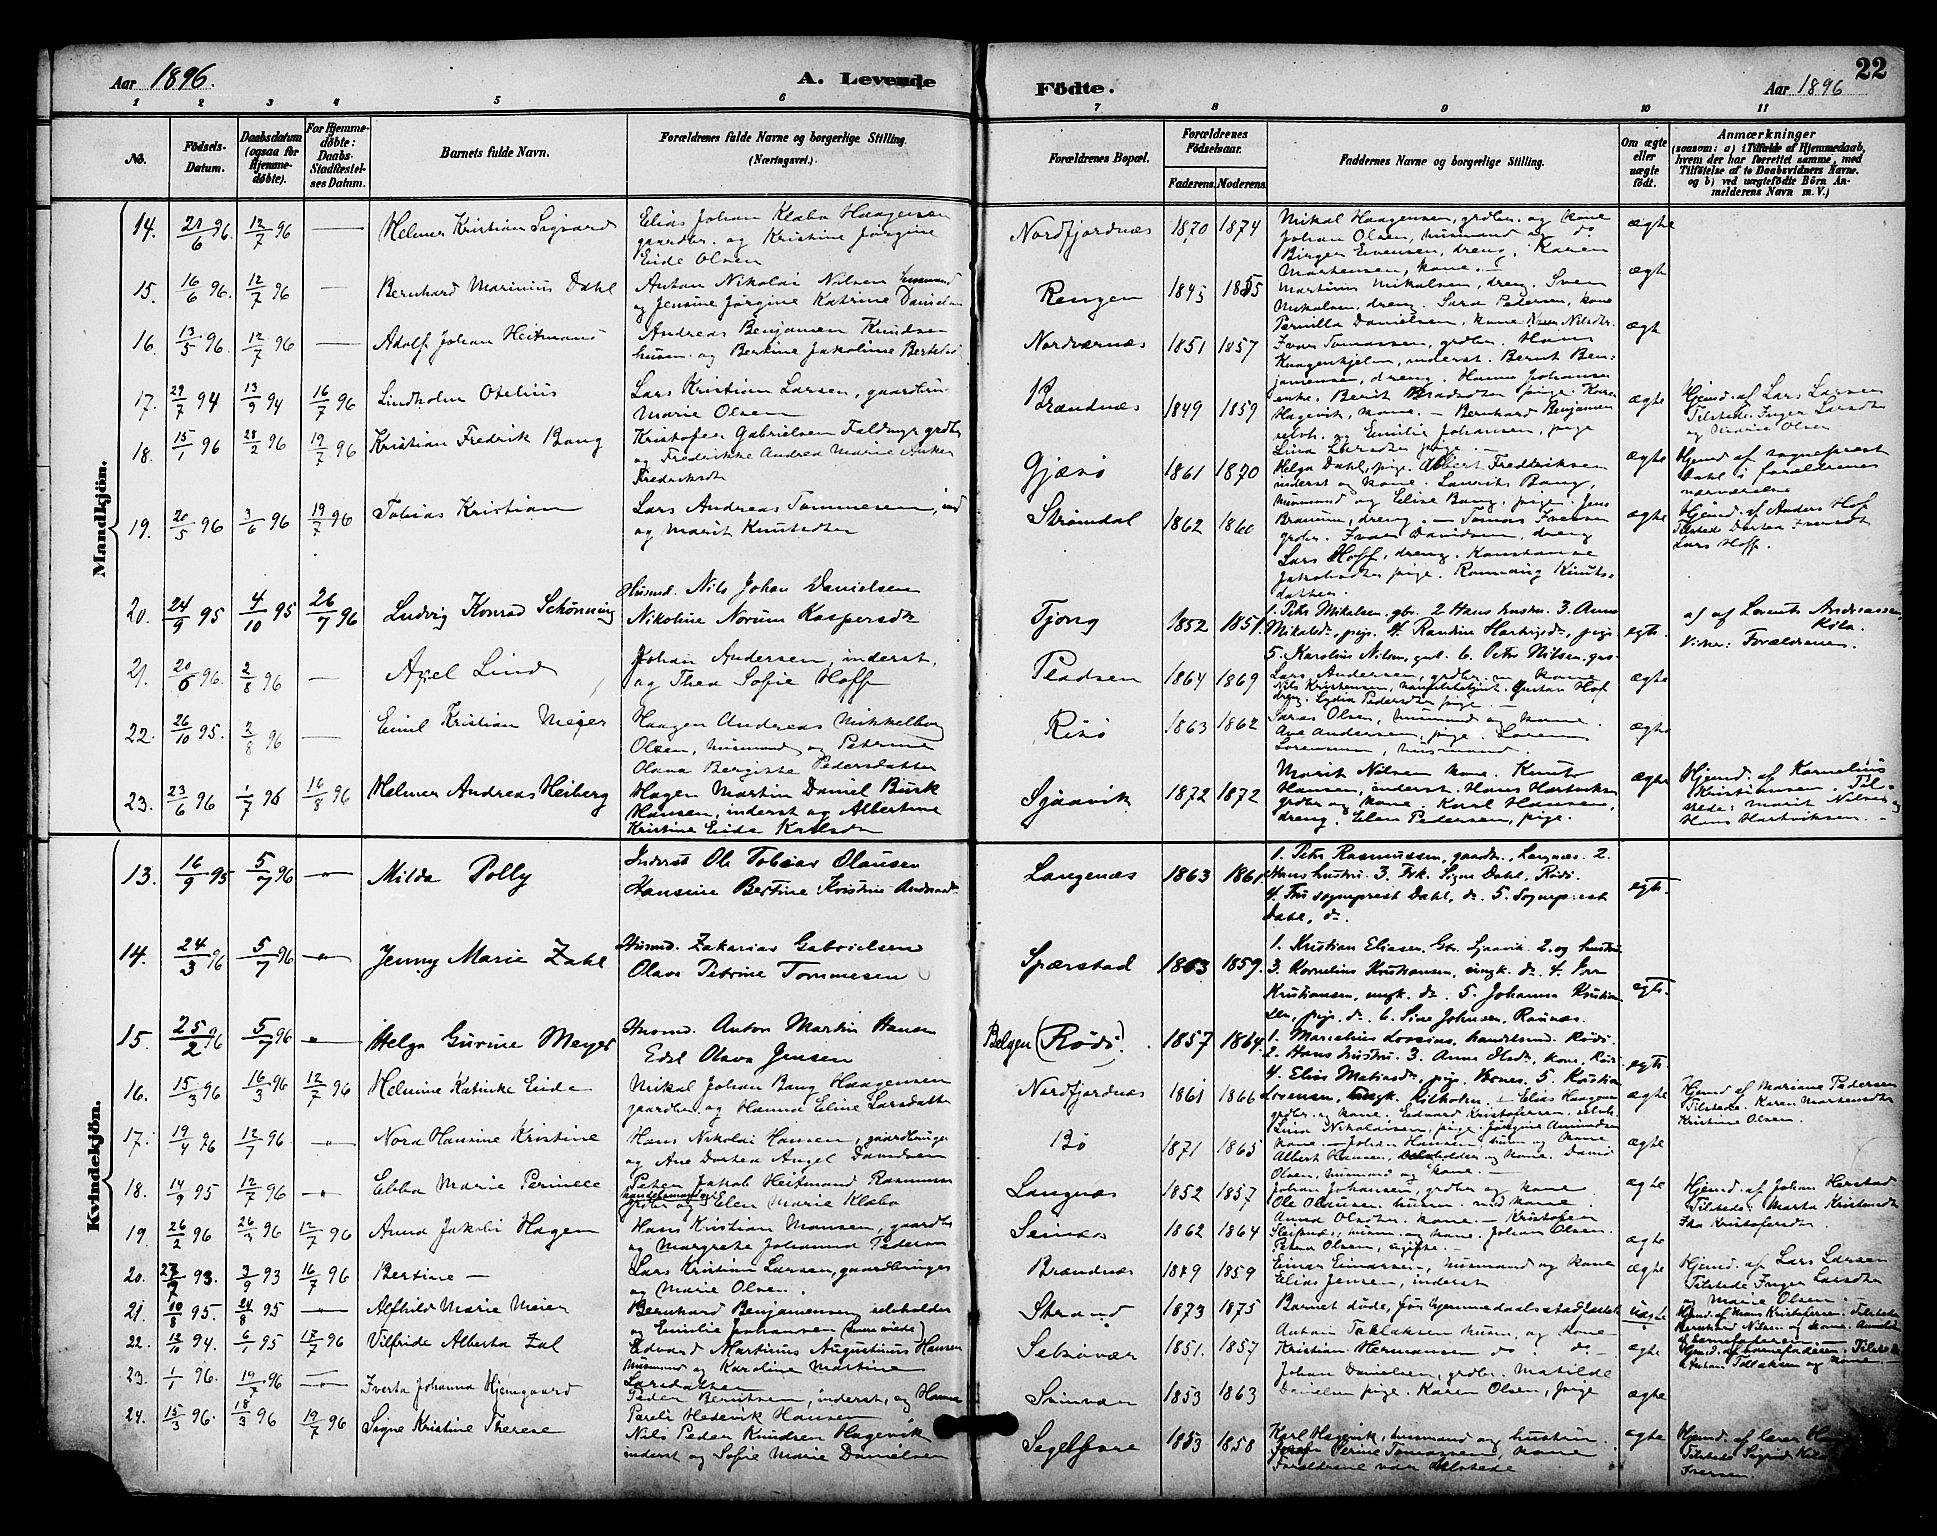 Aar 1896.
A. Levende
Fødte.
Aar 1896
22
1 2 3 4 5 6 7 8 9 10 11
No.
Fødsels-Datum.
Daabsdatum (ogsaa for Hjemme-døbte).
For Hjemme-døbte: Daabs-Stadfæstel-ses Datum.
Barnets fulde Navn.
Forældrenes fulde Navne og borgerlige Stilling.
(Næringsvei.)
Forældrenes Bopæl.
Forældrenes Fødselsaar.
Faderens. Moderens.
Faddernes Navne og borgerlige Stilling.
Om ægte eller uægte født.
Anmærkninger
(saasom: a) i Tilfælde af Hjemmedaab, hvem der har forrettet samme, med Tilføielse af to Daabsvidners Navne, og b) ved uægtefødte Børn An-melderens Navn m. V.)
Mandkjøn.
14. 12/7 96 Helmer Kristian Sigvard
Elias Johan Klæbo Haagensen
gaardbr. og Kristine Jørgine
Eide Olsen
Nordfjordnæs 1870 1874
Mikal Haagensen, grdbr. og kone
Johan Olsen, husmand og do
Birger Evensen, dreng. Karen
Martensen, kone.
ægte
15. 16/6 96. 12/7 96 Bernhard Marinius Dahl
Anton Nikolai Nilsen husmand
og Jensine Jørgine Katrine Danielsen
Rengen 1845 1855
Martinus Mikalsen, dreng. Sven
Mikalsen, dreng. Sara Pedersen, kone
Pernilla Danielsen, kone
ægte
16. 13/5 96. 12/7 96 Adolf Johan Heitmand
Andreas Benjamen Knudsen
husm. og Bertine Jakobine
Nordværnæs 1851 1857
Ivar Tomassen, grdbr. Hans
inderst. Bernt Ben-
jamensen, dreng. Hanna Johansen
ægte
17. 29/7 94 13/9 94 16/7 96 Lindholm Otelius
Lars Kristian Larsen, gaardbru-
Marie Olsen
Brændnæs 1849 1859
Hagevik, kone. — Bernhard Benjamen
og Emilie Johansen, pige
ægte
Hjemd. af Lars Larsen
Tilstede: Inger Larsdtr
og Marie Olsen
18. 15/1 96 28/2 96 19/7 96 Kristian Fredrik Bang
Kristofer Gabrielsen Faldnyr grdbr
og Fredrikke Andrea Marie Anker
Fredriksdtr
Gjæsø 1861 1870
Helga Dahl, pige. Albert Fredriksen
inderst og kone. Laurits Bang,
husmand og Elise Bang, pige. Jens
ægte
Hjemd. af sogneprest
Dahl i forældrenes
nærværelse
19. 20/5 96 3/6 96 19/7 96 Tobias Kristian
Lars Andreas Tommesen, ind
og Marit Knutsdtr
Strømdal 1862 1860
dreng. — Tomas Iversen
grdbr. Ivar Davidsen, dreng
Lars Hoff, dreng. Konstanse
Jakobsdtr pige. Rønnaug Knuts-
datter.
ægte
Hjemd. af Anders Hof
Tilstede Dortea Iversdtr
Lars Hoff.
20. 24/9 95 4/10 95 26/7 96 Ludvig Konrad Schønning
Husmd. Nils Johan Danielsen
Nikoline Norum Kaspersdtr
Tjong 1852 1851.
1. Peter Mikelsen, gbr. 2 Hans hustru. 3. Anna
Mikelsdtr, pige. 4. Randine Hartvigsdtr, pige
5. Karolius Nilsen, gut. 6. Peter Nilsen, gut
egte.
af af Lorents Andreassen
Kila.
Vidner: Forældrene.
21. 2/8 96 Axel Lind
Johan Andersen, inderst,
og Thea Sofie Hoff
1864 1869
Lars Andersen, grdbr. og kone
Nils Kristensen, Gustav Hof
dreng. Lydia Pedersdtr pige. —
ægte
22. 26/10 95. 2/8 96 Emil Kristian Meyer
Haagen Andreas Mikkelborg
Olsen, husmand, og Petrine
Olava Bergitte Pedersdatter
Risø 1863 1862
Olsen, husmand og kone.
Ane Andersen, pige. Loren
Lorensen, husmand.
ægte
23. 23/6 96 1/7 96 16/8 96 Helmer Andreas Heiberg
Hagen Martin Daniel Busk
Hansen, inderst og Albertine
Kristine Eide Karlsdtr
Sjaavik 1872 1872
Marit Nilsen kone. Knut
Hansen, inderst. Hans Hartviksen
grdbr og kone. Karl Hansen,
dreng. Elen Pedersen, pige.
ægte
Hjemd. af Kornelius
Kristiansen. Til-
stede: Marit Nilsen og
Hans Hartviksen. —
Kvindekjøn.
13. 16/9 95 5/7 96 Milda Polly
Inderst Ole Tobias Olausen
Hansine Bertine Kristine
Langnæs 1863 1861.
1. Peter Rasmussen, gaardbr., Langnæs. 2.
Hans hustru. 3. Frk. Signe Dahl, Rødø.
4. Fru sogneprest Dahl, do. 5. Sogneprest
Dahl, do.
egte.
14. 24/3 96 5/7 96 Jenny Marie Zahl
Husmd. Zakarias Gabrielsen
Olava Petrine Tommesen
Spærstad 1863 1859.
1. Kristian Eliasen, Gbr. Sjaavik. 2. og hustru
3. Kornelius Kristiansen, ungk. do. 4.
Kristiansen, ungk. do. 5. Johanna Kristian-
sen, pige. do. 6. Sine Johnsen,
egte.
15. 25/2 96 5/7 96 Helga Gurine Meyer
Husmd. Anton Martin Hansen
Edel Olava Jensen
Belgen (Rødø). 1857 1864.
1. Marselius handelsmd. Rødø.
2. Hans hustru. 3. Anne kone,
4. Elise Matiasdtr, pige. 5. Kristian
Lorensen, ungk.
egte.
16. 15/3 96 16/3 96 12/7 96 Helmine Katinke Eide
Mikal Johan Bang Haagensen
gaardbr. og Hanna Eline Larsdatter
Nordfjordnæs 1861 1866
Elias Haagensen
grdbr. og kone. Edvard Kristofersen,
Lina Nikolaisen, pige. Jørgine
ægte
Hjemd af Mariane Pedersen
Tilstede. Karen Martensdtr
Kristine Olsen.
17. 19/4 96 12/7 96 Nora Hansine Kristine
Hans Nikolai Hansen, gaardbruger
og Ane Dortea Angel Davidsen
Bø 1871 1865
kone. — Johan Hansen, husm og kone
Albert Hansen, og kone.
Olsen, husmand og kone. —
ægte
18. 14/9 95 12/7 96 Ebba Marie Pernille
Peter Jakob Heitmand Rasmussen
grdbr og Elen Marie Klæbo
Langnæs 1852 1857
Johan Johansen, grdbr og kone
Ole Olausen husm. med kone
Anna Olsdtr. kone. — Kristofer
ægte
Hjemd. af Johan Herstad
Tilstede: Marta Kristensdtr
Ida Kristofersdtr
19. 26/2 96 12/7 96 Anna Jakobi Hagen
Hans Kristian Monsen, gaardbr
og Margrete Johanna Pedersen
1862 1864
husm. og kone. Johan Olsen.
Petra Olsen, ugift. —
ægte
20. 93. 3/9 93 16/7 96 Bertine —
Lars Kristian Larsen, gaardbruger
og Marie Olsen.
Brændnæs 1849 1859
Einar Einarsen, husmand og kone
Elias Jensen, inderst
ægte
Hjemd. af Lars Larsen
Tilstede Inger Larsdtr
og Marie Olsen —
21. 10/8 95. 24/8 95 Alfhild Marie Meier
Bernhard Benjamensen, selvholder
og Emilie Johansen
Strand 1873 1875
Barnet døde, før hjemmedaabs stadfæstet
uægte
22. 12/10 94. 6/1 95 12/7 96 Vilfride Alberta Zal
Edvard Martinus Augustinus Hansen
husmand og Karoline Martine
Larsdatter
Selsøvær 1851. 1857
Anton Tollaksen husm. og kone —
Kristian Hermansen do. do —
ægte
Hjemd. af barnefaderen. Tilstede
Anton Tollaksen og kone. —
23. 1/1 96. 19/7 96 Iverta Johanna Hjemgaard
Peder Berntsen, inderst, og Hanna
Pareli Hedevik Hansen
1853 1863
Johan Danielsen, grdbr. Matilde
Danielsen pige. Karen Olsen, pige
ægte
24. 15/3 96. 18/3 96 19/7 96 Signe Kristine Therese
Nils Peder Knudsen Hagevik
inderst og Sofie Marie Danielsen
Segelfore 1853 1858
Karl Hagevik, husmand og hustru.
Serine Tomassen, kone
Forældrene var tilstede
ægte
Hjemd. af lærer
Tilstede Sigrid
Iversen.